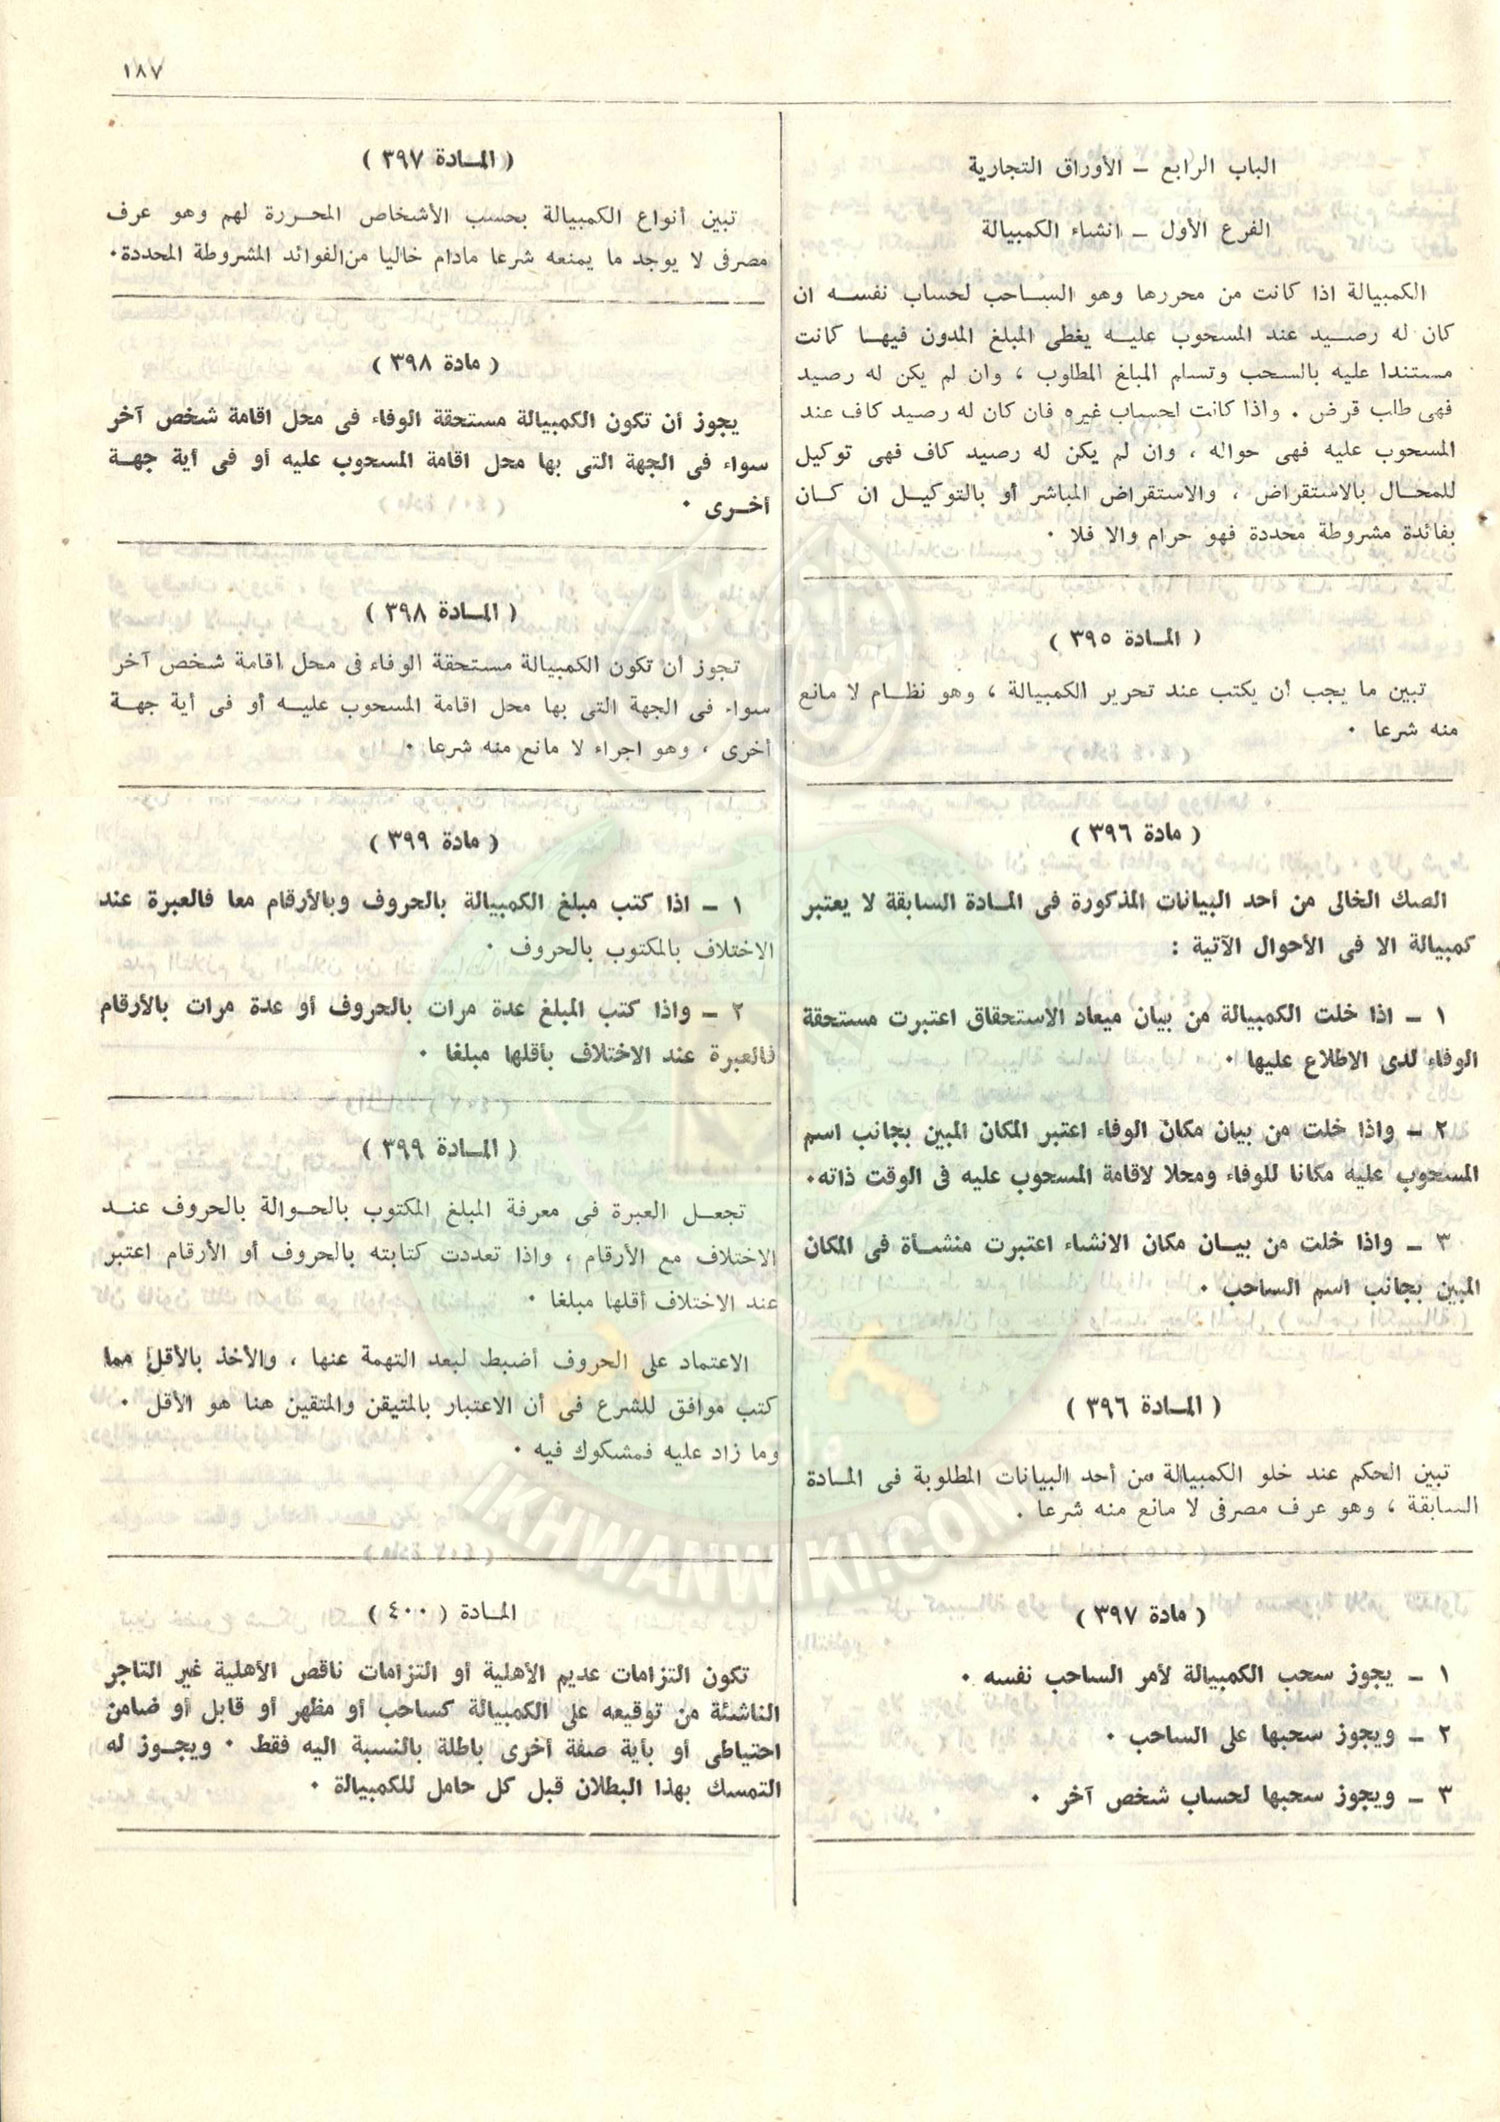 ١٨٧
الباب الرابع – الأوراق التجارية
الفرع الأول – انشاء الكمبيالة
الكمبيالة اذا كانت من محررها وهو الساحب لحساب نفسه ان
كان له رصيد عند المسحوب عليه يغطى المبلغ المدون فيها كانت
مستندا عليه بالسحب وتسام المبلغ المطاوب ، وان لم يكن له رصيد
فهى طلب قرض . واذا كانت لحساب غيره فان كان له رصيد كاف عند
المسحوب عليه فهى حواله ، وان لم يكن له رصيد كاف فهى توكيل
للمحال بالاستقراض ، والاستقراض المباشر أو بالتوكيل ان كان
بفائدة مشروطة محددة فهو حرام والا فلا .
( المادة ٣٩٥ )
تبين ما يجب أن يكتب عند تحرير الكمبيالة ، وهو نظام لا مانع
منه شرعا .
( مادة ٣٩٦ )
الصك الخالى من أحد البيانات المذكورة فى المادة السابقة لا يعتبر
كمبيالة الا فى الأحوال الآتية :
١ – اذا خلت الكمبيالة من بيان ميعاد الاستحقاق اعتبرت مستحقة
الوفاء لدى الاطلاع عليها .
٢ – واذا خلت من بيان مكان الوفاء اعتبر المكان المبين بجانب اسم
المسحوب عليه مكانا للوفاء ومحلا لاقامة المسحوب عليه فى الوقت ذاته.
٣ – واذا خلت من بيان مكان الانشاء اعتبرت منشأة فى المكان
المبين بجانب اسم الساحب .
( المادة ٣٩٦ )
تبين الحكم عند خلو الكمبيالة من أحد البيانات المطلوبة فى المادة
السابقة ، وهو عرف مصرفى لا مانع منه شرعا .
( مادة ٣٩٧ )
١ – يجوز سحب الكمبيالة لأمر الساحب نفسه .
٢ – ويجوز سحبها على الساحب .
٣ – ويجوز سحبها لحساب شخص آخر .
( المادة ٣٩٧ )
تبين أنواع الكمبيالة بحسب الأشخاص المحررة لهم وهو عرف
مصرفى لا يوجد ما يمنعه شرعا مادام خاليا من الفوائد المشروطة المحددة.
( مادة ٣٩٨ )
يجوز أن تكون الكمبيالة مستحقة الوفاء فى محل اقامة شخص آخر
سواء فى الجهة التى بها محل اقامة المسحوب عليه أو فى أية جهة
أخرى .
( المادة ٣٩٨ )
تجوز أن تكون الكمبيالة مستحقة الوفاء فى محل اقامة شخص آخر
سواء فى الجهة التى بها محل اقامة المسحوب عليه أو فى أية جهة
أخرى ، وهو اجراء لا مانع منه شرعا .
( مادة ٣٩٩ )
١ – اذا كتب مبلغ الكمبيالة بالحروف وبالأرقام معا فالعبرة عند
الاختلاف بالمكتوب بالحروف .
٢ – واذا كتب المبلغ عدة مرات بالحروف أو عدة مرات بالأرقام
فالعبرة عند الاختلاف بأقلها مبلغا .
( المادة ٣٩٩ )
تجعل العبرة فى معرفة المبلغ المكتوب بالحوالة بالحروف عند
الاختلاف مع الأرقام ، واذا تعددت كتابته بالحروف أو الأرقام اعتبر
عند الاختلاف أقلها مبلغا .
الاعتماد على الحروف أضبط لبعد التهمة عنها ، والأخذ بالأقل مما
كتب موافق للشرع فى أن الاعتبار بالمتيقن والمتقين هنا هو الأقل .
وما زاد عليه فمشكوك فيه .
المادة ( ٤٠٠ )
تكون التزامات عديم الأهلية أو التزامات ناقص الأهلية غير التاجر
الناشئة من توقيعه على الكمبيالة كساحب أو مظهر أو قابل أو ضامن
احتياطى أو بأية صفة أخرى باطلة بالنسبة اليه فقط . ويجوز له
التمسك بهذا البطلان قبل كل حامل للكمبيالة .
IKHWANWIKI.COM